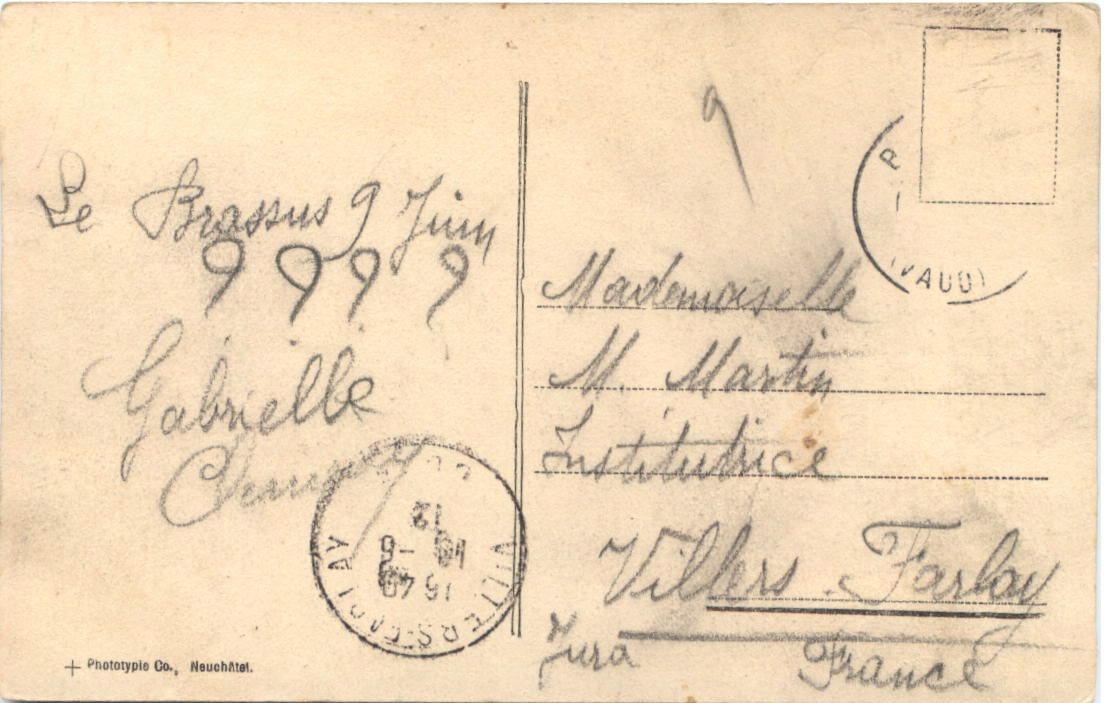 Le Brassus 9 Juin
9 9 9 9
Gabrielle
+ Phototypie Co., Neuchâtel.
9
Mademoiselle
M. Martin
Institutrice
Villers-Farlay
Jura France
(VAUD)
VILLERS-FARLAY
16 40
10 - 6
12